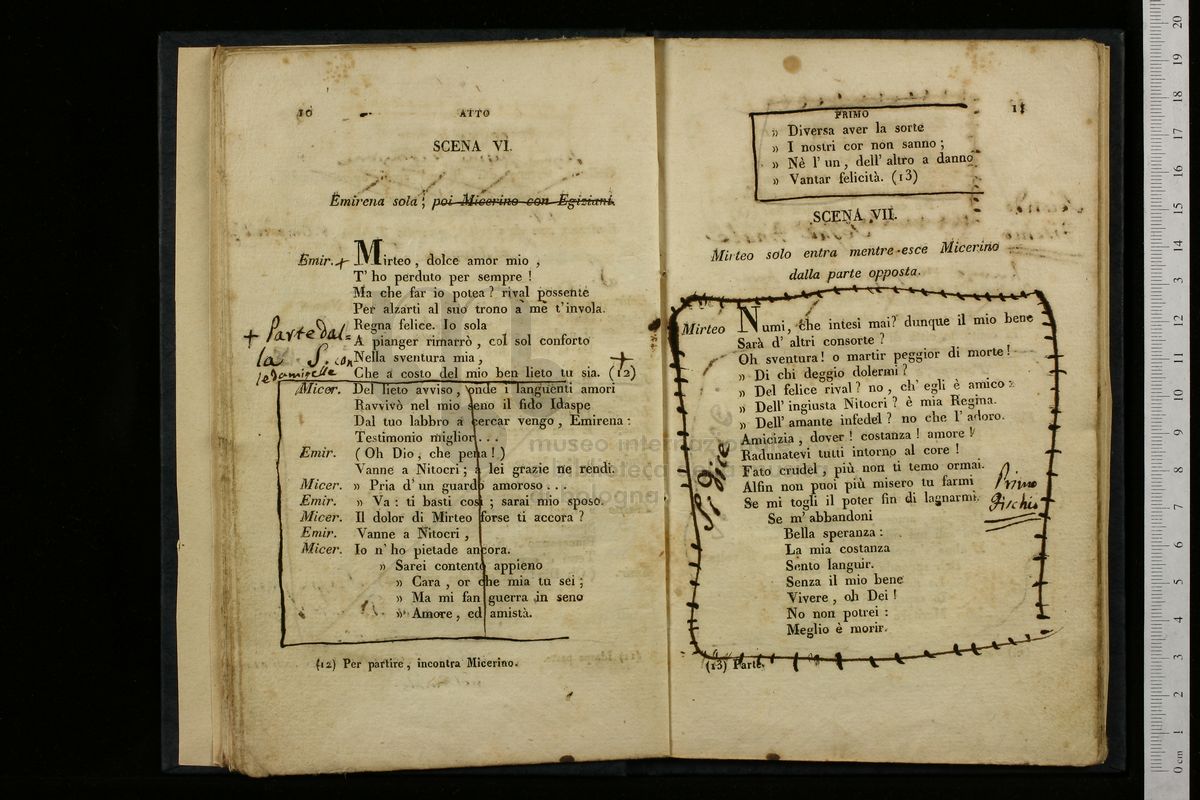 10
ATTO
SCENA VI.
Emirena sola; poi Micerino con Egiziani.
Emir. + Mirteo, dolce amor mio,
T' ho perduto per sempre!
Ma che far io potea? rival possente
Per alzarti al suo trono a me t'invola.
Regna felice. Io sola
A pianger rimarrò, col sol conforto
Nella sventura mia,
Che a costo del mio ben lieto tu sia. (12)
+ Parte dal=
la S. con
le damigelle
+
Micer. Del lieto avviso, onde i languenti amori
Ravvivò nel mio seno il fido Idaspe
Dal tuo labbro a cercar vengo, Emirena:
Testimonio miglior...
Emir. (Oh Dio, che pena!)
Vanne a Nitocri; a lei grazie ne rendi.
Micer. » Pria d' un guardo amoroso...
Emir. » Va: ti basti così; sarai mio sposo.
Micer. Il dolor di Mirteo forse ti accora?
Emir. Vanne a Nitocri,
Micer. Io n' ho pietade ancora.
» Sarei contento appieno
» Cara, or che mia tu sei;
» Ma mi fan guerra in seno
» Amore, ed amistà.
(12) Per partire, incontra Micerino.
PRIMO
11
» Diversa aver la sorte
» I nostri cor non sanno;
» Nè l' un, dell' altro a danno
» Vantar felicità. (13)
SCENA VII.
Mirteo solo entra mentre esce Micerino
dalla parte opposta.
Mirteo Numi, che intesi mai? dunque il mio bene
Sarà d' altri consorte?
Oh sventura! o martir peggior di morte!
» Di chi deggio dolermi?
» Del felice rival? no, ch' egli è amico:
» Dell' ingiusta Nitocri? è mia Regina.
» Dell' amante infedel? no che l' adoro.
Amicizia, dover! costanza! amore!
Radunatevi tutti intorno al core!
Fato crudel, più non ti temo ormai.
Alfin non puoi più misero tu farmi
Se mi togli il poter fin di lagnarmi.
Se m' abbandoni
Bella speranza:
La mia costanza
Sento languir.
Senza il mio bene
Vivere, oh Dei!
No non potrei:
Meglio è morir.
Si dice
Primo
Fischio
(13) Parte.
museo internazionale
biblioteca della musica
di bologna